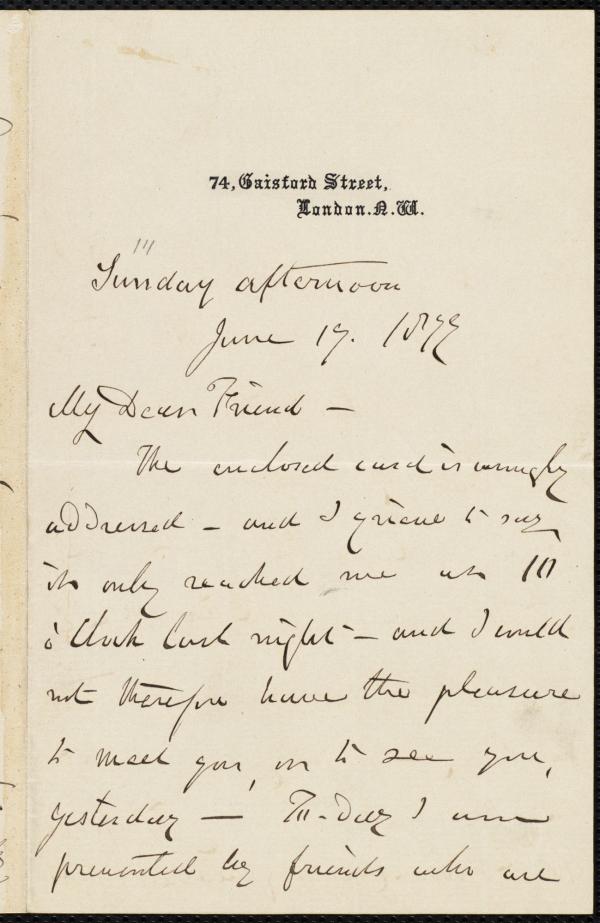 74, Gaisford Street,
London. N. W.
Sunday afternoon
June 17. 1877
My Dear Friend —
The enclosed card is wrongly
addressed — and I grieve to say
it only reached me at 10
o'Clock last night — and I could
not therefore have the pleasure
to meet you, or to see you,
yesterday — To-Day I am
prevented by friends who are